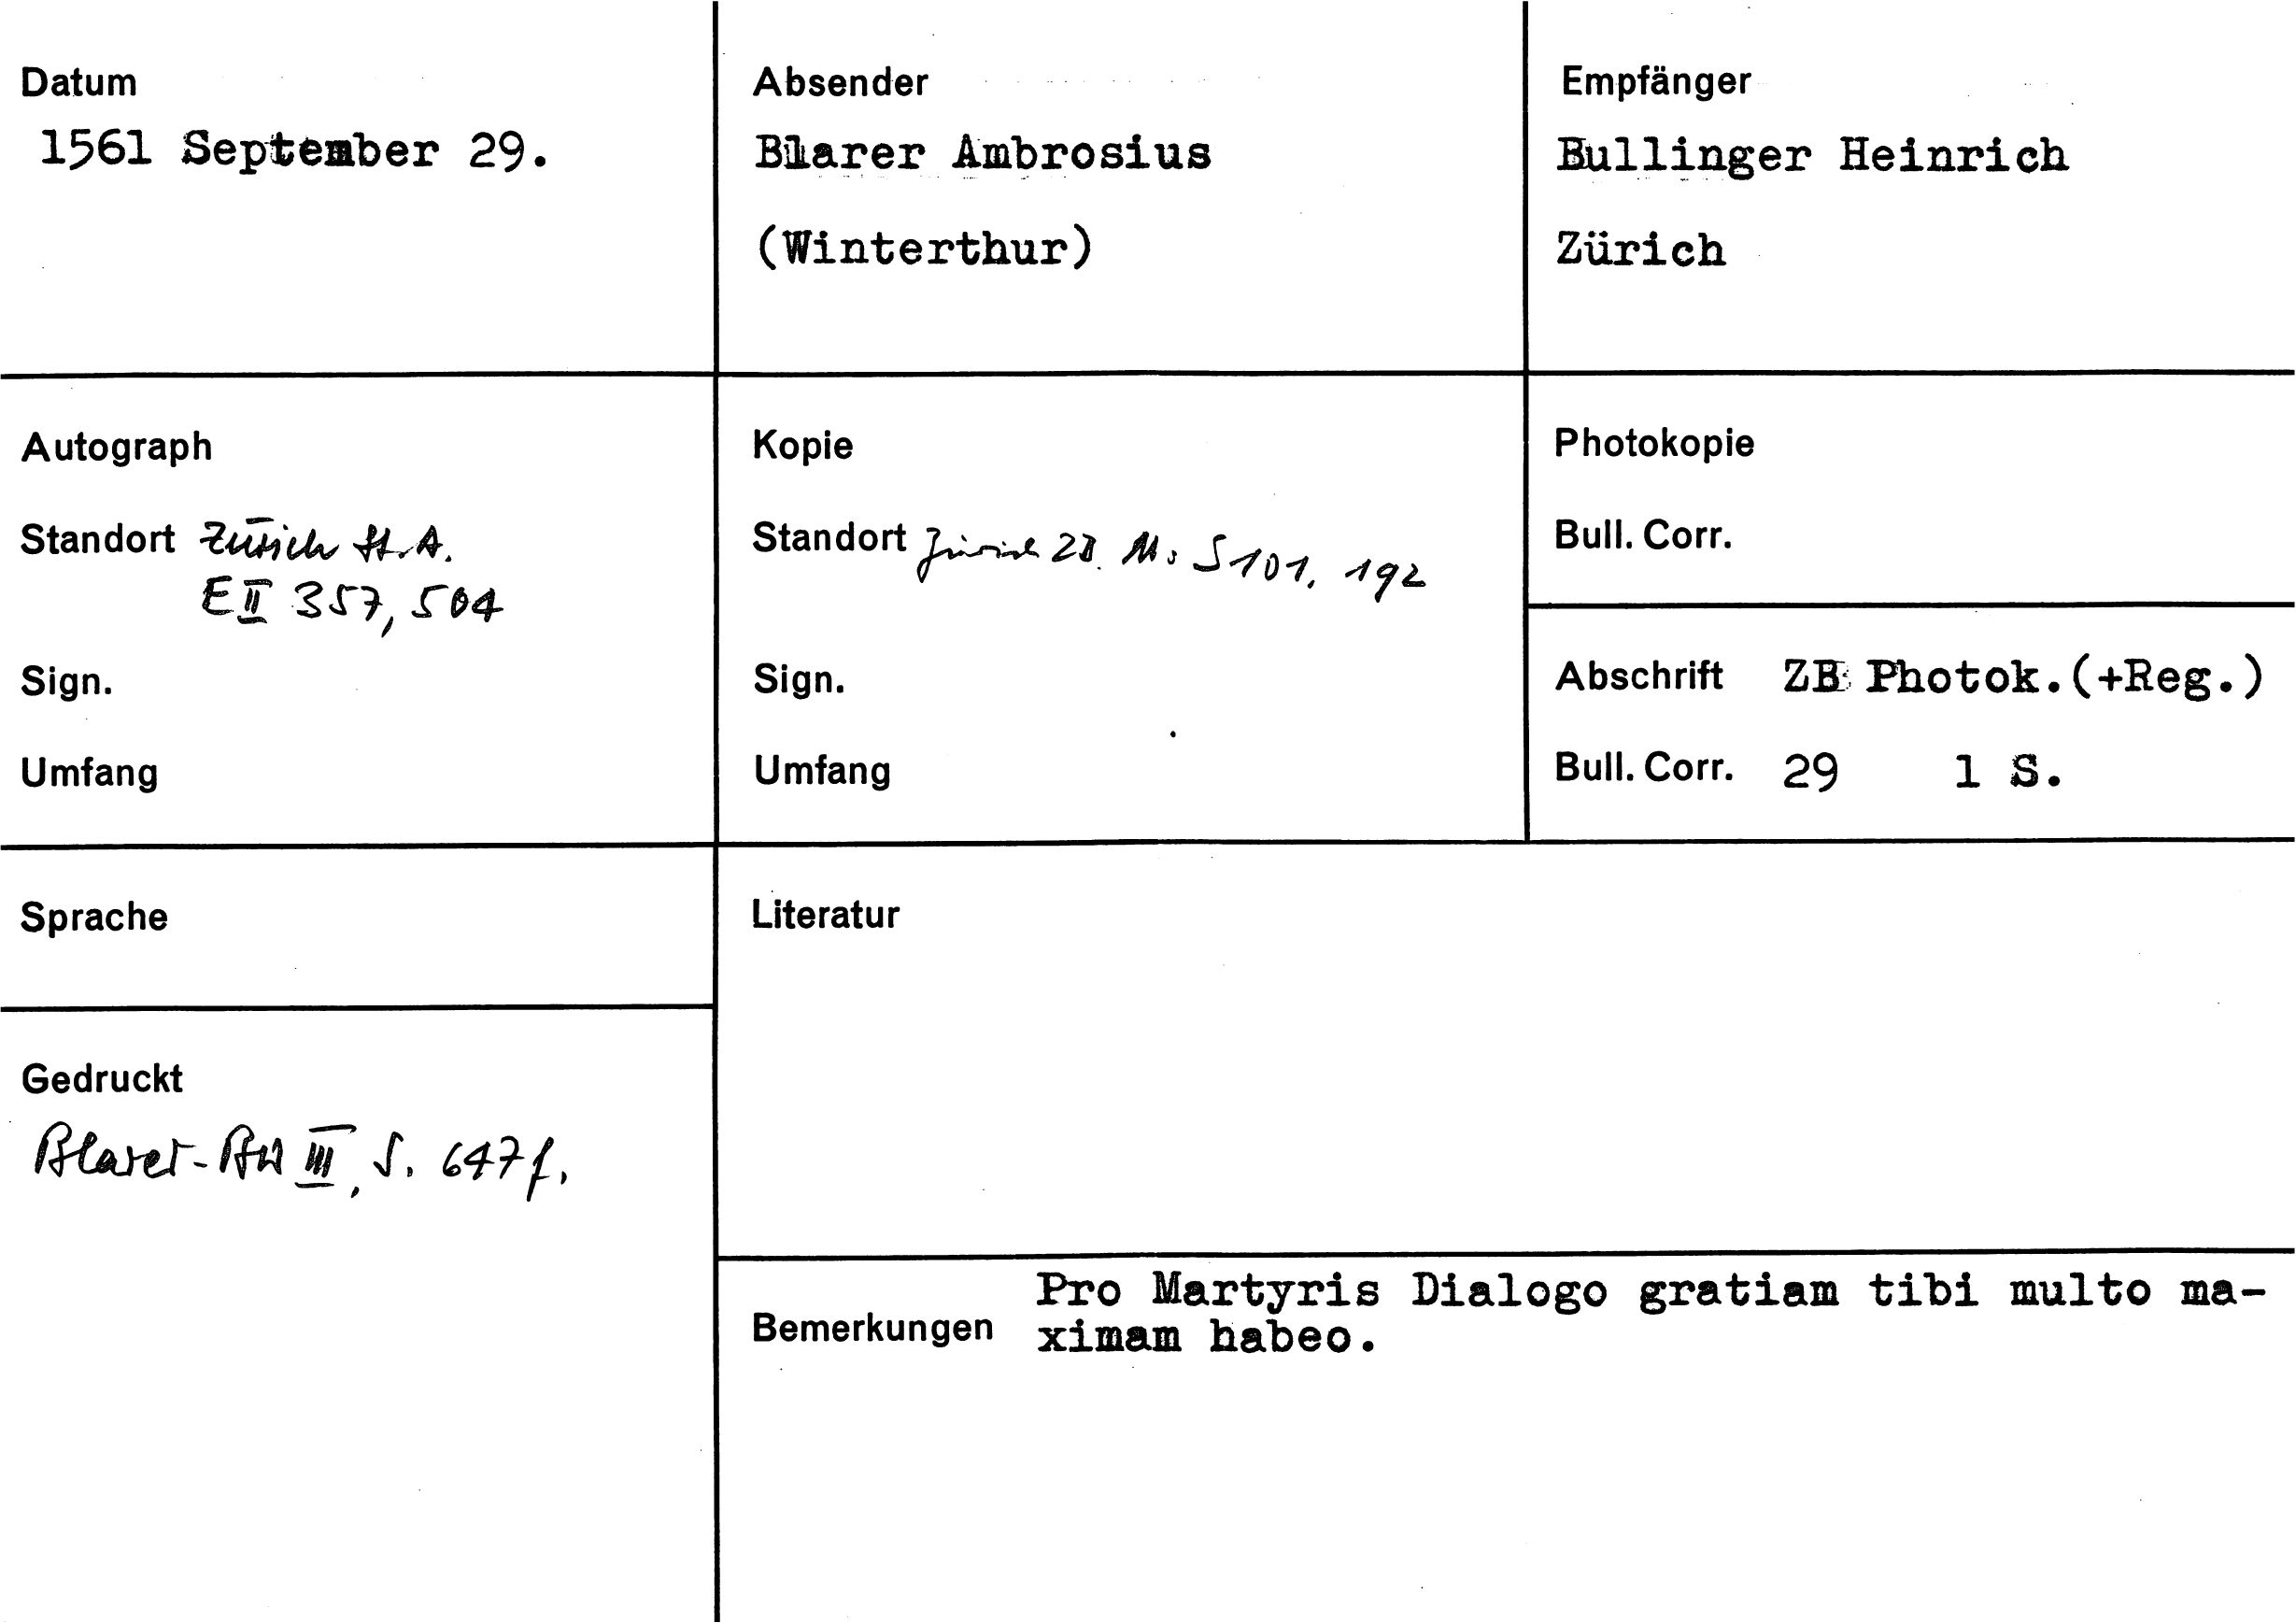 Datum
1561 September 29.
Absender
Blarer Ambrosius
(Winterthur)
Empfänger
Bullinger Heinrich
Zürich
Autograph
Standort Zürich St.A.
E II 357, 504
Sign.
Umfang
Kopie
Standort Zürich ZB. Ms S 101, 192
Sign.
Umfang
Photokopie
Bull. Corr.
Abschrift ZB Photok.(+Reg.)
Bull. Corr. 29 1 S.
Sprache
Literatur
Gedruckt
Blarer-BW III, S. 647f.
Bemerkungen
Pro Martyris Dialogo gratiam tibi multo ma-
ximam habeo.